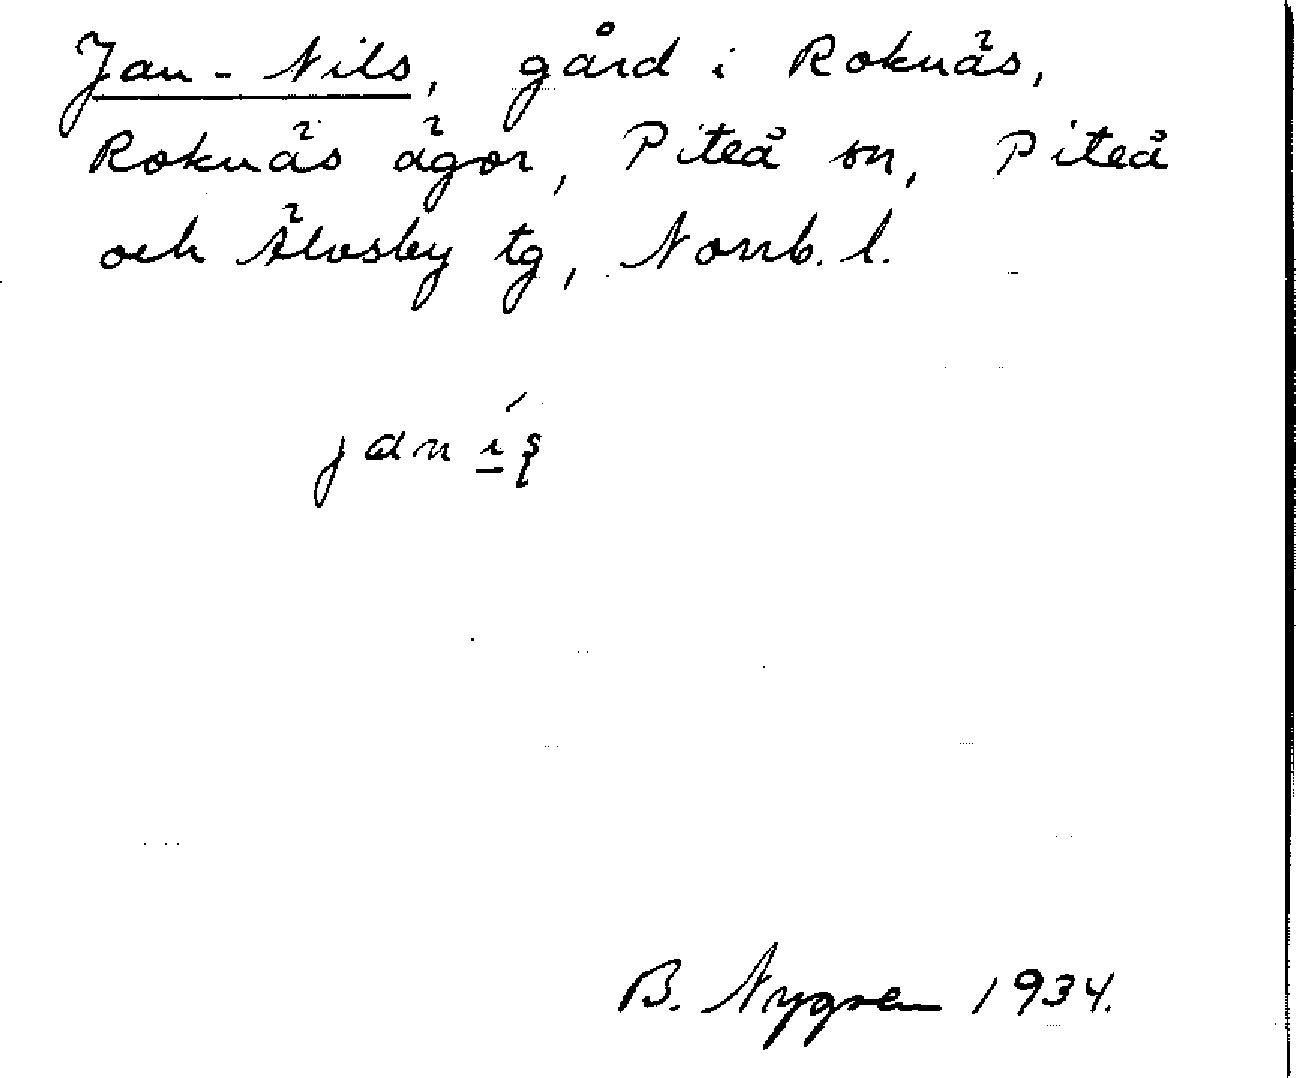 Jan-Nils, gård i Roknäs,
Roknäs ägor, Piteå sn, Piteå
och Älvsby tg, Norrb. l.
B. Nygren 1934.